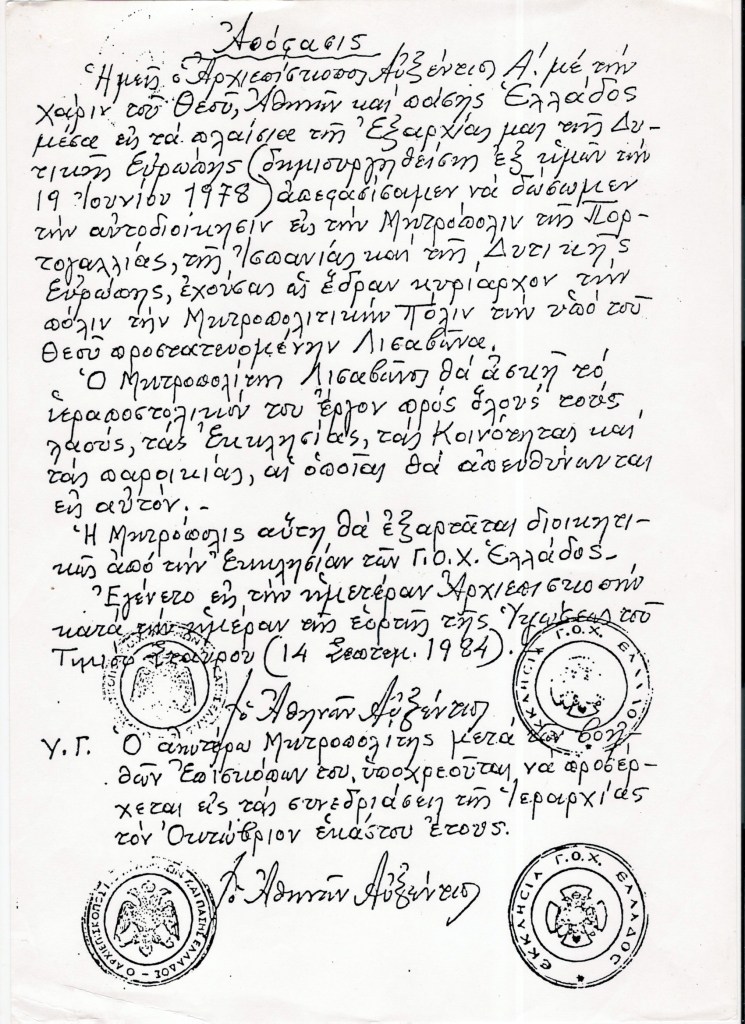 Ἀπόφασις
Ἡμεῖς ὁ Ἀρχιεπίσκοπος Αὐξέντιος Α! μέ τήν
χάριν τοῦ Θεοῦ, Ἀθηνῶν καί πάσης Ἑλλάδος
μέσα εἰς τά πλαίσια τῆς Ἐξαρχίας μας τῆς Δυ-
τικῆς Εὐρώπης (δημιουργηθείσης ἐξ ἡμῶν τήν
19 Ἰουνίου 1978) ἀπεφασίσαμεν νά δώσωμεν
τήν αὐτοδιοίκησιν εἰς τήν Μητρόπολιν τῆς Πορ-
τογαλλίας, τῆς Ἱσπανίας καί τῆς Δυτικῆς
Εὐρώπης, ἐχούσας ὡς ἕδραν κυρίαρχον τήν
πόλιν τήν Μητροπολιτικήν Πόλιν τήν ὑπό τοῦ
Θεοῦ προστατευομένην Λισαβῶνα.
Ὁ Μητροπολίτης Λισαβῶνος θά ἀσκῆ τό
ἱεραποστολικόν του ἔργον πρός ὅλους τούς
λαούς, τάς Ἐκκλησίας, τάς Κοινότητας καί
τάς παροικίας, αἱ ὁποῖαι θά ἀπευθύνωνται
εἰς αὐτόν.-
Ἡ Μητρόπολις αὕτη θά ἐξαρτᾶται διοικητι-
κῶς ἀπό τήν Ἐκκλησίαν τῶν Γ.Ο.Χ. Ἑλλάδος-
Ἐγένετο εἰς τήν ἡμετέραν Ἀρχιεπισκοπήν
κατά τήν ἡμέραν τῆς ἑορτῆς τῆς Ὑψώσεως τοῦ
Τιμίου Σταυροῦ (14 Σεπτεμ. 1984).
ὁ Ἀθηνῶν Αὐξέντιος
Υ.Γ. Ὁ ἀνωτέρω Μητροπολίτης μετά τῶν βοη-
θῶν Ἐπισκόπων του, ὑποχρεοῦται νά προσέρ-
χεται εἰς τάς συνεδριάσεις τῆς Ἱεραρχίας
τόν Ὀκτώβριον ἑκάστου ἔτους.
ὁ Ἀθηνῶν Αὐξέντιος
ΕΚΚΛΗΣΙΑ Γ.Ο.Χ. ΕΛΛΑΔΟΣ
Ο ΑΡΧΙΕΠΙΣΚΟΠΟΣ ΑΘΗΝΩΝ ΚΑΙ ΠΑΣΗΣ ΕΛΛΑΔΟΣ
ΕΚΚΛΗΣΙΑ Γ.Ο.Χ. ΕΛΛΑΔΟΣ